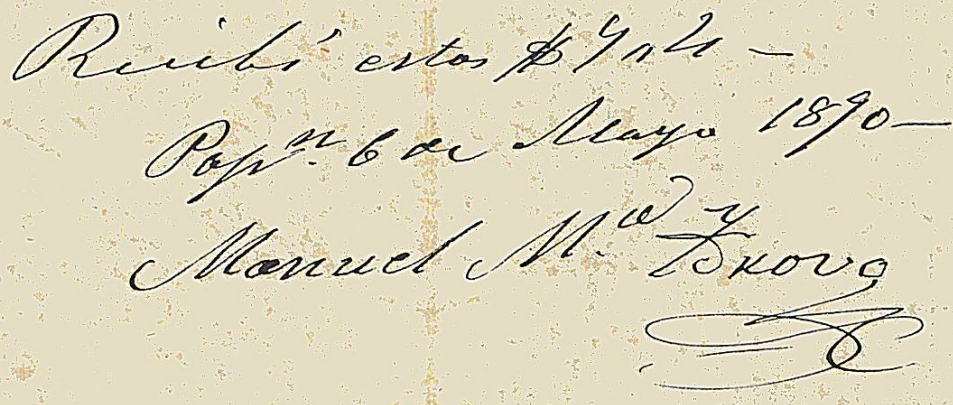 Recibí estos $
Pop.ⁿ 6 de Mayo 1890—
Manuel M.ª